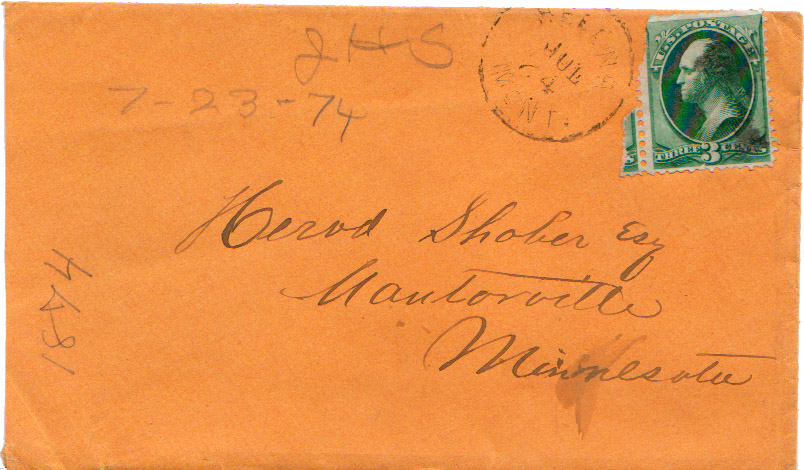 JHS
7-23-74
HELENA
JUL
24
MONT.
U.S. POSTAGE
THREE 3 CENTS
Herod Shober Esq
Mantorville
Minnesota
1874